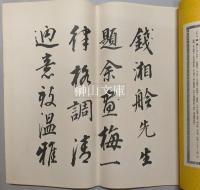 錢湘舲先生
題余畫梅一
律格調清
迥意致溫雅
榊山文庫